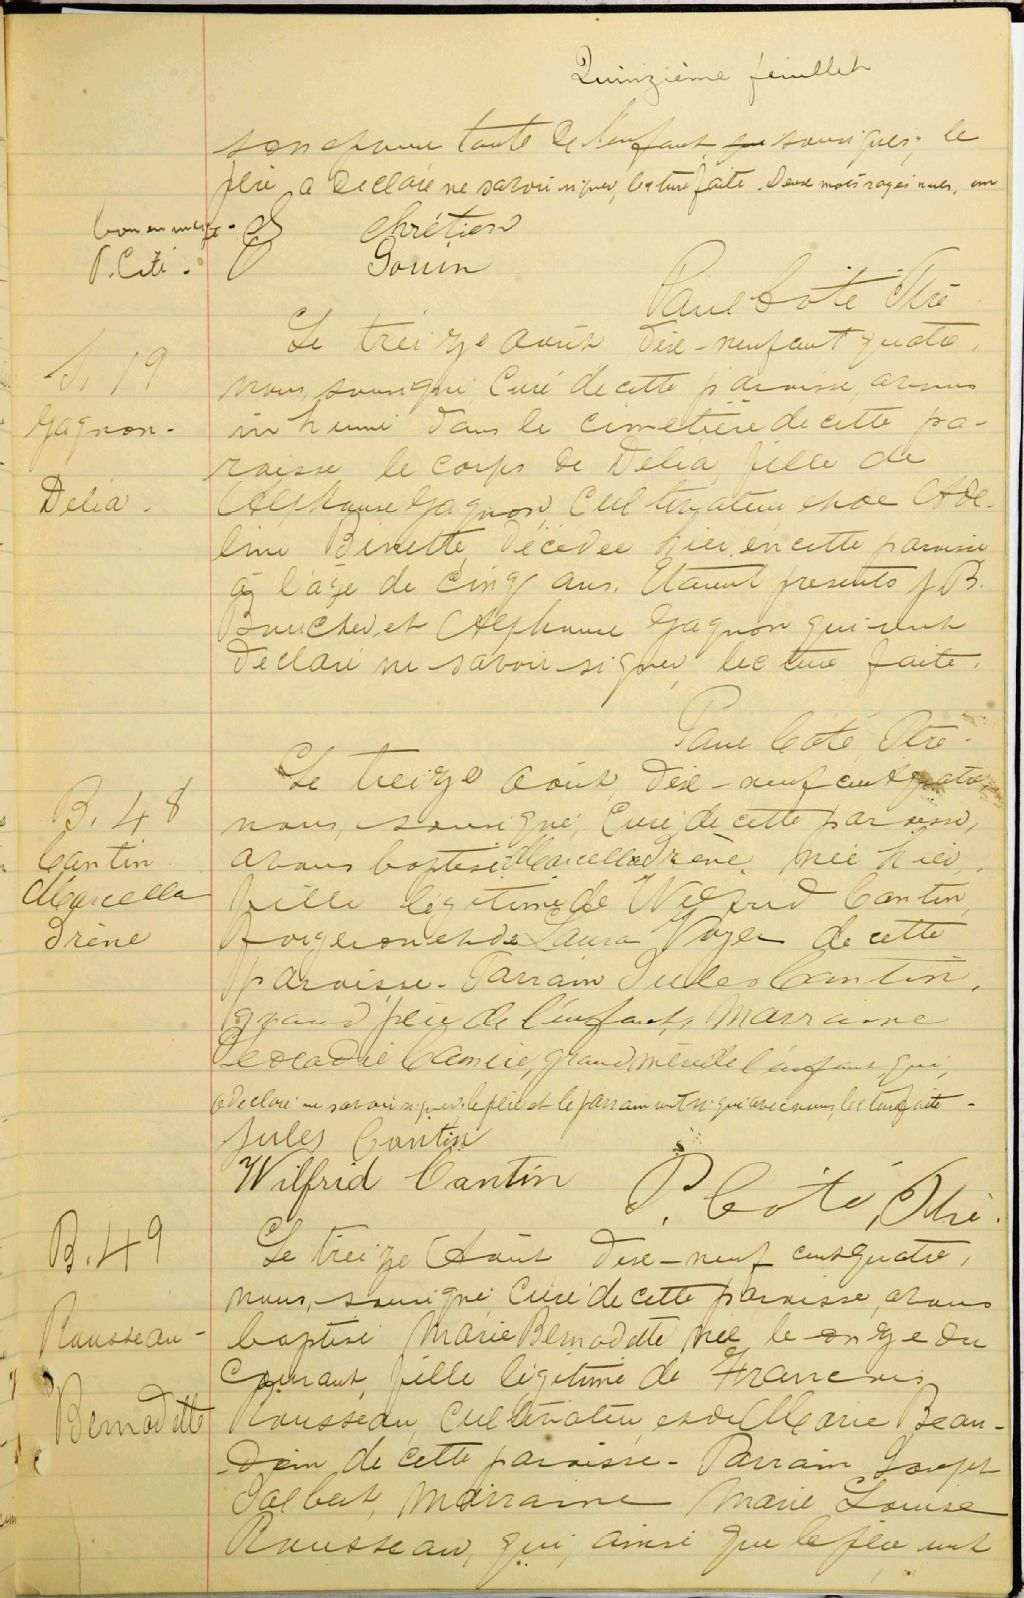 Quinzième feuillet
son épouse tante de l'enfant soussignés; le
père a déclaré ne savoir signer, lecture faite. Deux mots rayés nuls, un
bon en marge.
P. Côté.
Chrétien
Gouin
Paul Côté Ptre
S. 19
Gagnon-
Delia.
Le treize août dix-neuf cent quatre,
nous, soussigné, Curé de cette paroisse, avons
inhumé dans le cimetière de cette pa-
roisse le corps de Delia, fille de
Alphonse Gagnon, Cultivateur et de Adé-
line Binette, décédée hier en cette paroisse
à l'âge de cinq ans. Etaient présents J. B.
Boucher, et Alphonse Gagnon qui ont
déclaré ne savoir signer, lecture faite.
Paul Côté, Ptre.
B. 48
Cantin
Marcella
Irène
Le treize août dix-neuf cent quatre,
nous, soussigné, Curé de cette paroisse,
avons baptisé Marcella Irène, née hier,
fille légitime de Wilfrid Cantin,
forgeron et de Laura Voyer de cette
paroisse. Parrain Jules Cantin,
grand père de l'enfant, Marraine
grand mère de l'enfant, qui,
a déclaré ne savoir signer; le père et le parrain ont signé avec nous, lecture faite.
Jules Cantin
Wilfrid Cantin
P. Côté, Ptre.
B. 49
Rousseau-
Bernadette
Le treize Août dix-neuf cent quatre,
nous, soussigné, Curé de cette paroisse, avons
baptisé Marie Bernadette, née le onze du
courant, fille légitime de Francois
Rousseau, Cultivateur, et de Marie Beau-
doin de cette paroisse. Parrain Joseph
Talbert, Marraine Marie Louise
Rousseau, qui, ainsi que le père ont